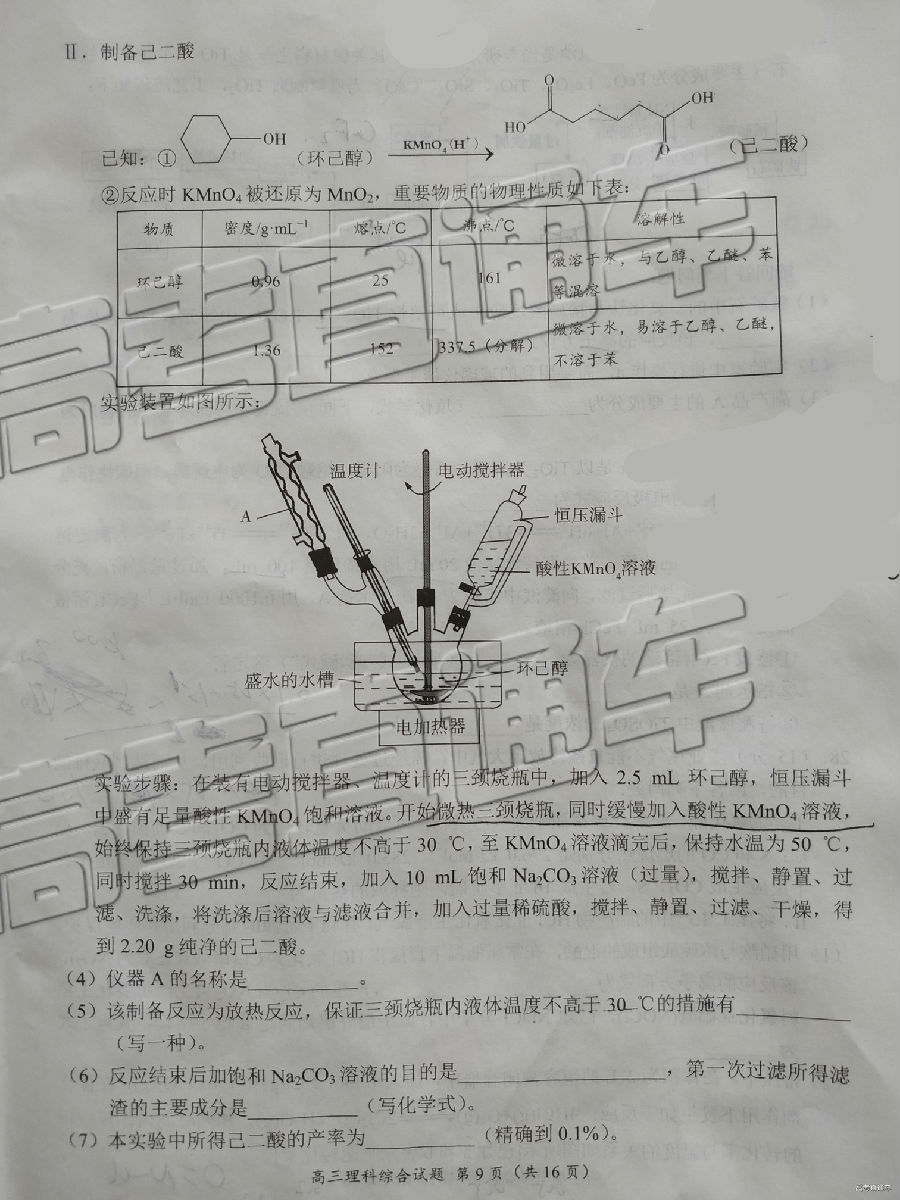 Ⅱ．制备己二酸
已知：① OH （环己醇） KMnO₄(H⁺) HO O O OH （己二酸）
②反应时 KMnO₄ 被还原为 MnO₂，重要物质的物理性质如下表：
物质 密度/g·mL⁻¹ 熔点/℃ 沸点/℃ 溶解性
环己醇 0.96 25 161 微溶于水，与乙醇、乙醚、苯
等混溶
己二酸 1.36 152 337.5（分解） 微溶于水，易溶于乙醇、乙醚，
不溶于苯
实验装置如图所示：
温度计 电动搅拌器
A 恒压漏斗
酸性KMnO₄溶液
盛水的水槽 环己醇
电加热器
实验步骤：在装有电动搅拌器、温度计的三颈烧瓶中，加入 2.5 mL 环己醇，恒压漏斗
中盛有足量酸性 KMnO₄ 饱和溶液。开始微热三颈烧瓶，同时缓慢加入酸性 KMnO₄ 溶液，
始终保持三颈烧瓶内液体温度不高于 30 ℃，至 KMnO₄溶液滴完后，保持水温为 50 ℃，
同时搅拌 30 min，反应结束，加入 10 mL 饱和 Na₂CO₃ 溶液（过量），搅拌、静置、过
滤、洗涤，将洗涤后溶液与滤液合并，加入过量稀硫酸，搅拌、静置、过滤、干燥，得
到 2.20 g 纯净的己二酸。
（4）仪器 A 的名称是__________。
（5）该制备反应为放热反应，保证三颈烧瓶内液体温度不高于 30 ℃的措施有__________
（写一种）。
（6）反应结束后加饱和 Na₂CO₃ 溶液的目的是____________________，第一次过滤所得滤
渣的主要成分是__________（写化学式）。
（7）本实验中所得己二酸的产率为__________（精确到 0.1%）。
高三理科综合试题 第 9 页（共 16 页）
高考直通车
高考直通车
高考直通车